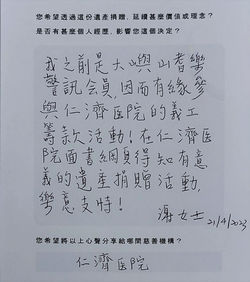 您希望透過這份遺產捐贈，延續甚麼價值或理念？
是否有甚麼個人經歷，影響您這個決定？
我之前是大嶼山耆樂
警訊会員，因而有緣參
與仁濟医院的義工
籌款活動！在仁濟医
院面書網頁得知有意
義的遺產捐贈活動，
樂意支持！
謝女士
21/4/2023
您希望將以上心聲分享給哪間慈善機構？
仁濟医院